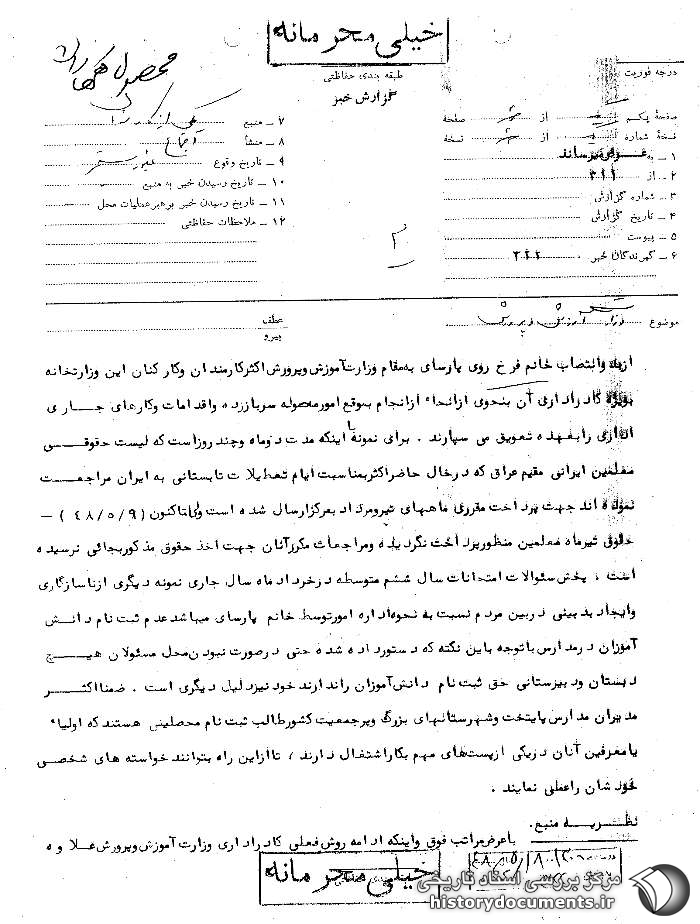 خیلی محرمانه
طبقه بندی حفاظتی
گزارش خبر
درجه فوریت
صفحهٔ یکم از صفحه
نسخهٔ شماره از نسخه
۱ ـ به
۲ ـ از ۳۲۲
۳ ـ شماره گزارش
۴ ـ تاریخ گزارش
۵ ـ پیوست
۶ ـ گیرندگان خبر ۳۲۲
۷ ـ منبع
۸ ـ منشأ
۹ ـ تاریخ وقوع
۱۰ ـ تاریخ رسیدن خبر به منبع
۱۱ ـ تاریخ رسیدن خبر برهبر عملیات محل
۱۲ ـ ملاحظات حفاظتی
موضوع وزارت آموزش و پرورش
عطف
پیرو
ازبدوانتصاب خانم فرخ روی پارسای به‌مقام وزارت‌آموزش‌وپرورش اکثرکارمندان وکارکنان این وزارتخانه
بویژه کادراداری آن بنحوی ازانحاء ازانجام بموقع امورمحوله سرباززده واقدامات وکارهای جاری
اداری رابعهده تعویق می سپارند . برای نمونه اینکه مدت دوماه وچندروزاست که لیست حقوقی
معلمین ایرانی مقیم عراق که درحال حاضراکثربمناسبت ایام تعطیلات تابستانی به ایران مراجعت
نموده اند جهت پرداخت مقرری ماههای تیرومرداد بمرکزارسال شده است ولی‌تاکنون (۴۸/۵/۹) –
حقوق تیرماه معلمین منظورپرداخت نگردیده ومراجعات مکررآنان جهت اخذ حقوق مذکوربجائی نرسیده
است ، پخش سئوالات امتحانات سال ششم متوسطه درخرداد ماه سال جاری نمونه دیگری ازناسازگاری
وایجاد بدبینی دربین مردم نسبت به نحوه‌اداره امورتوسط خانم پارسای میباشدعدم ثبت نام دانش
آموزان درمدارس باتوجه باین نکته که دستورداده شده حتی درصورت نبودن‌محل مسئولان هیچ
دبستان ودبیرستانی حق ثبت نام دانش‌آموزان راندارند خود نیزدلیل دیگری است . ضمنا اکثر
مدیران مدارس پایتخت وشهرستانهای بزرگ وپرجمعیت کشورطالب ثبت نام محصلینی هستند که اولیاء
یامعرفین آنان دریکی ازپست‌های مهم بکاراشتغال دارند ، تاازاین راه بتوانند خواسته های شخصی
خودشان راعملی نمایند .
نظریه منبع.
باعرض‌مراتب فوق واینکه ادامه روش‌فعلی کادراداری وزارت آموزش‌وپرورش‌علاوه
خیلی محرمانه
مرکز بررسی اسناد تاریخی
historydocuments.ir